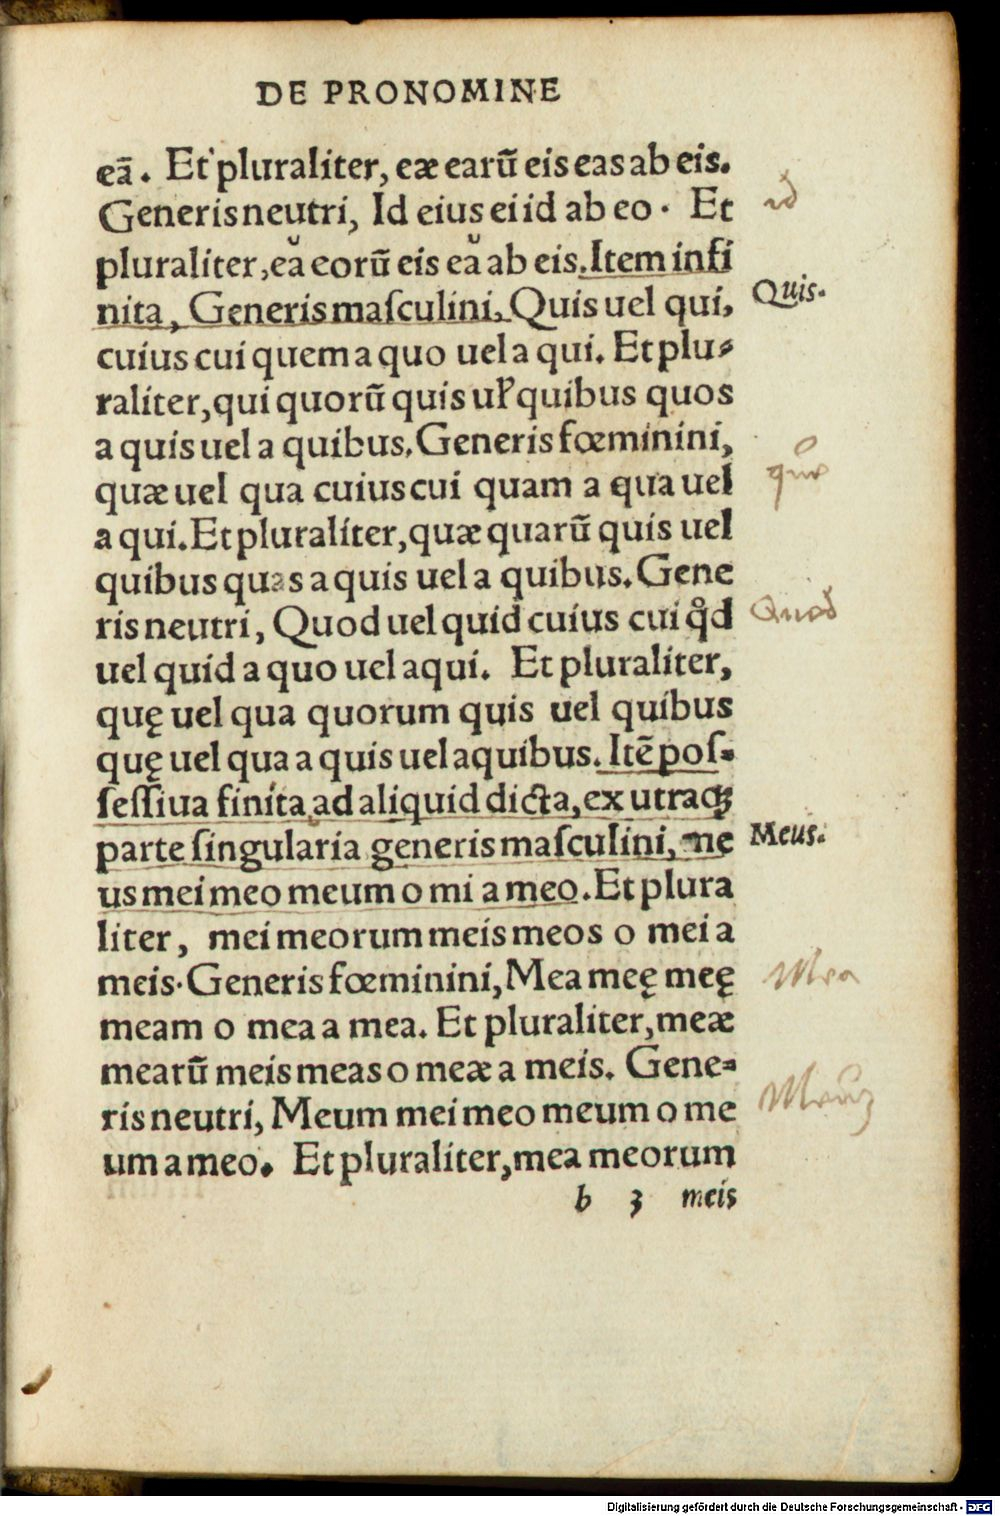 DE PRONOMINE
eā. Et pluraliter, eæ earū eis eas ab eis.
Generis neutri, Id eius ei id ab eo. Et
id
pluraliter, ea eorū eis ea ab eis. Item infi
nita, Generis maſculini, Quis uel qui,
Quis.
cuius cui quem a quo uel a qui. Et plu-
raliter, qui quorū quis uł quibus quos
a quis uel a quibus. Generis fœminini,
quæ uel qua cuius cui quam a qua uel
que
a qui. Et pluraliter, quæ quarū quis uel
quibus quas a quis uel a quibus. Gene
ris neutri, Quod uel quid cuius cui qd̊
Quod
uel quid a quo uel a qui. Et pluraliter,
quę uel qua quorum quis uel quibus
quę uel qua a quis uel a quibus. Itē poſ-
ſeſſiua finita ad aliquid dicta, ex utraqꝫ
parte ſingularia generis maſculini, me
Meus.
us mei meo meum o mi a meo. Et plura
liter, mei meorum meis meos o mei a
meis. Generis fœminini, Mea meę meę
Mea
meam o mea a mea. Et pluraliter, meæ
mearū meis meas o meæ a meis. Gene-
ris neutri, Meum mei meo meum o me
um a meo. Et pluraliter, mea meorum
b 3 meis
Digitalisierung gefördert durch die Deutsche Forschungsgemeinschaft - DFG